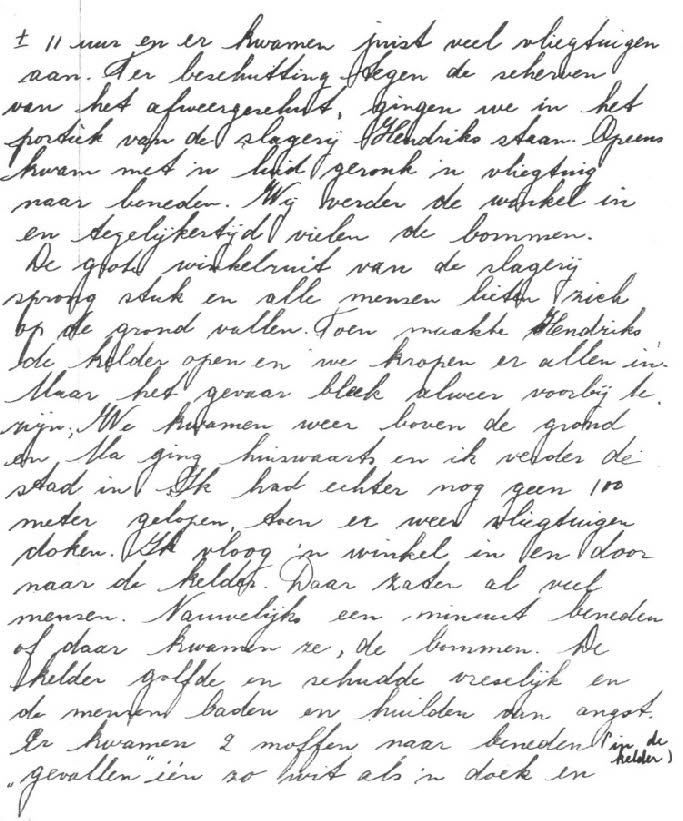 ± 11 uur en er kwamen juist veel vliegtuigen
aan. Ter beschutting tegen de scherven
van het afweergeschut, gingen we in het
portiek van de slagerij Hendriks staan. Opeens
kwam met 'n luid geronk 'n vliegtuig
naar beneden. Wij verder de winkel in
en tegelijkertijd vielen de bommen.
De grote winkelruit van de slagerij
sprong stuk en alle mensen lieten zich
op de grond vallen. Toen maakte Hendriks
de kelder open en we kropen er allen in.
Maar het gevaar bleek alweer voorbij te
zijn. We kwamen weer boven de grond
en Ma ging huiswaarts en ik verder de
stad in. Ik had echter nog geen 100
meter gelopen, toen er weer vliegtuigen
doken. Ik vloog 'n winkel in en door
naar de kelder. Daar zaten al veel
mensen. Nauwelijks een minuut beneden
of daar kwamen ze, de bommen. De
kelder golfde en schudde vreselijk en
de mensen baden en huilden van angst.
Er kwamen 2 moffen naar beneden (in de
kelder)
„gevallen" één zo wit als 'n doek en